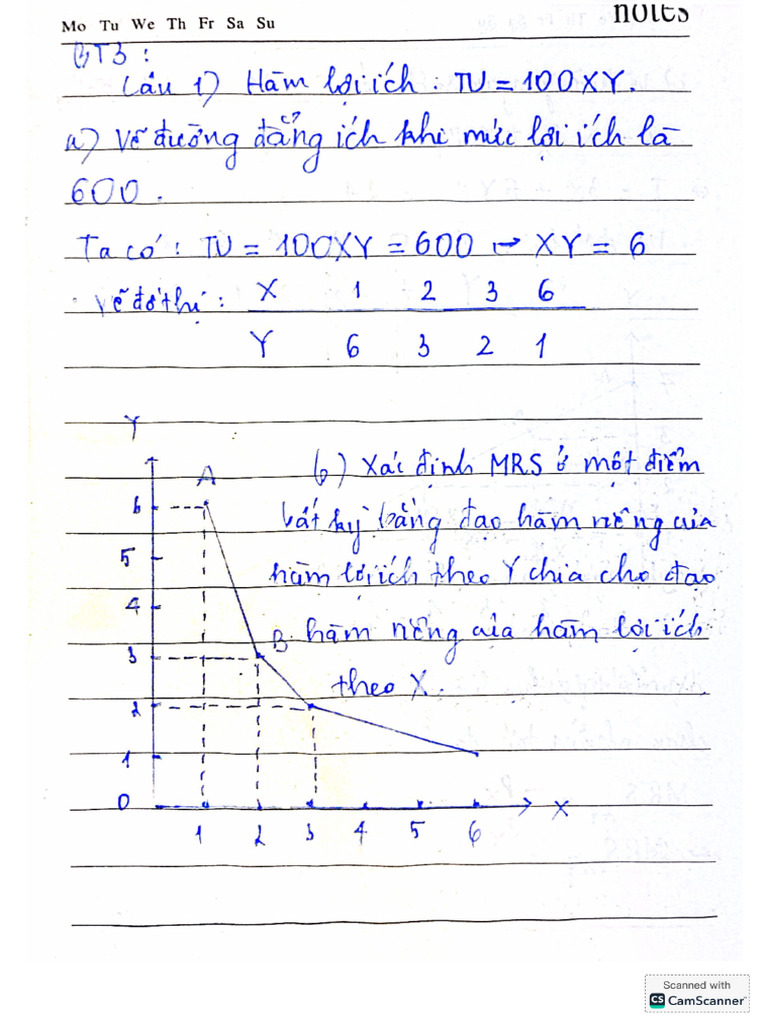 Mo Tu We Th Fr Sa Su
notes
BT3 :
Câu 1) Hàm lợi ích : TU = 100XY.
a) Vẽ đường đẳng ích khi mức lợi ích là
600.
Ta có : TU = 100XY = 600 → XY = 6
Vẽ đồ thị : X 1 2 3 6
Y 6 3 2 1
Y
A
b) Xác định MRS ở một điểm
bất kỳ bằng đạo hàm riêng của
hàm lợi ích theo Y chia cho đạo
hàm riêng của hàm lợi ích
theo X.
6
5
4
3
B
2
1
0
X
1 2 3 4 5 6
Scanned with
CS CamScanner